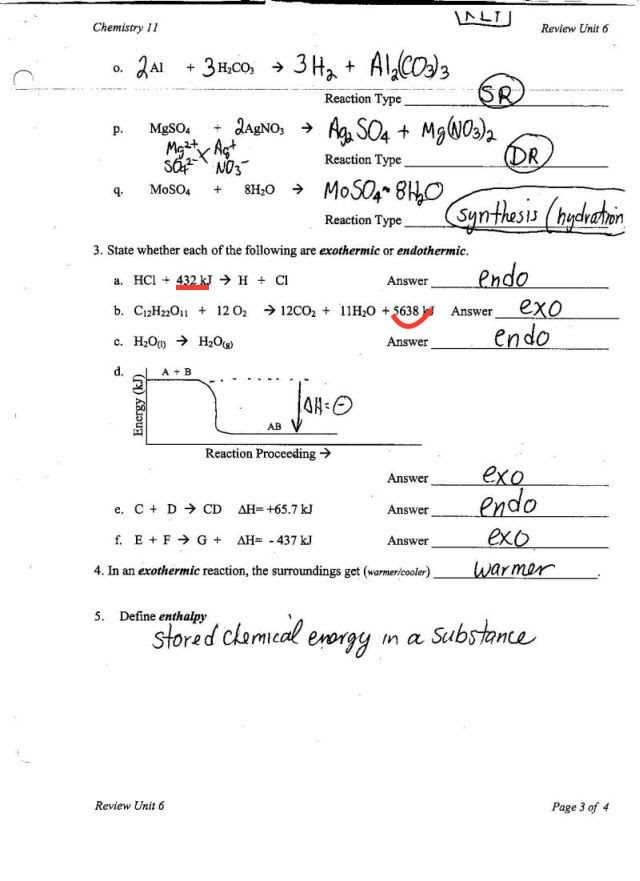 Chemistry 11 Review Unit 6
o. 2Al + 3H₂CO₃ → 3H₂ + Al₂(CO₃)₃
Reaction Type SR
p. MgSO₄ + 2AgNO₃ → Ag₂SO₄ + Mg(NO₃)₂
Mg²⁺ Ag⁺
SO₄²⁻ NO₃⁻
Reaction Type DR
q. MoSO₄ + 8H₂O → MoSO₄•8H₂O
Reaction Type synthesis (hydration
3. State whether each of the following are exothermic or endothermic.
a. HCl + 432 kJ → H + Cl Answer endo
b. C₁₂H₂₂O₁₁ + 12 O₂ → 12CO₂ + 11H₂O + 5638 kJ Answer exo
c. H₂O₍ₗ₎ → H₂O₍g₎ Answer endo
d. A + B
Energy (kJ)
ΔH = ⊖
AB
Reaction Proceeding →
Answer exo
e. C + D → CD ΔH= +65.7 kJ Answer endo
f. E + F → G + ΔH= - 437 kJ Answer exo
4. In an exothermic reaction, the surroundings get (warmer/cooler) warmer.
5. Define enthalpy
stored chemical energy in a substance
Review Unit 6 Page 3 of 4